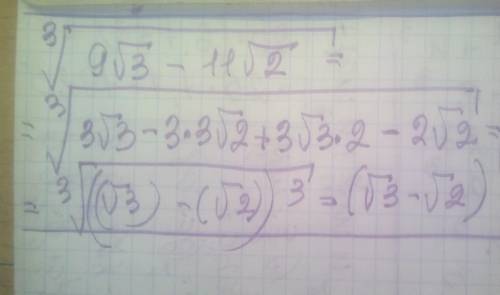 ∛(9√3 − 11√2) =
= ∛(3√3 − 3·3√2 + 3√3·2 − 2√2) =
= ∛((√3) − (√2))³ = (√3 − √2)